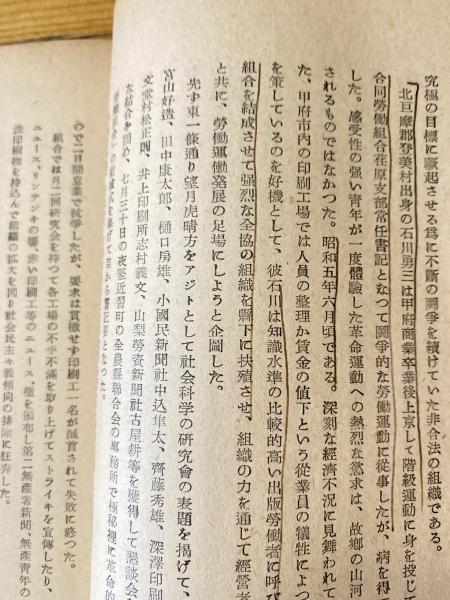 究極の目標に蹶起させる爲に不斷の鬪爭を續けていた非合法の組織である。
北巨摩郡登美村出身の石川勇三は甲府商業卒業後上京して階級運動に身を投じて
合同勞働組合荏原支部常任書記となつて鬪爭的な勞働運動に從事したが、病を得て
した。感受性の强い靑年が一度體驗した革命運動への熱烈な慾求は、故鄕の山河
されるものではなかつた。昭和五年六月頃である。深刻な經濟不況に見舞われて
た、甲府市內の印刷工場では人員の整理か賃金の値下という從業員の犠牲によつ
を策しているのを好機として、彼石川は知識水準の比較的高い出版勞働者に呼び
組合を結成させて强烈な全協の組織を縣下に扶殖させ、組織の力を通じて經營者
と共に、勞働運動発展の足場にしようと企圖した。
先ず東一條通り望月虎晴方をアジトとして社会科学の硏究會の表題を揭げて、
宮山好造、田中康太郞、樋口房雄、小國民新聞社中込隼太、齊藤秀雄、深澤印刷
文堂村松正則、井上印刷所志村義文、山梨勞資新聞社古屋耕等を獲得して懇談会
な結合を固め、七月三十日の夜堅近習町の全農縣聯合会の事務所で極秘裡に革命的
ので二日間怠業で抗爭したが、要求は貫徹せず印刷工一名が馘首されて失敗に終つた。
組合では月二回硏究会を持つて各工場の不平不滿を取り上げてストライキを宣傳したり、
ニュース、リンテンキの響、赤い印刷工等のニュース、檄を頒布し第二無產者新聞、無產靑年の
法印刷物を持込んで組織の拡大を図り社会民主々義傾向の排除に狂奔した。